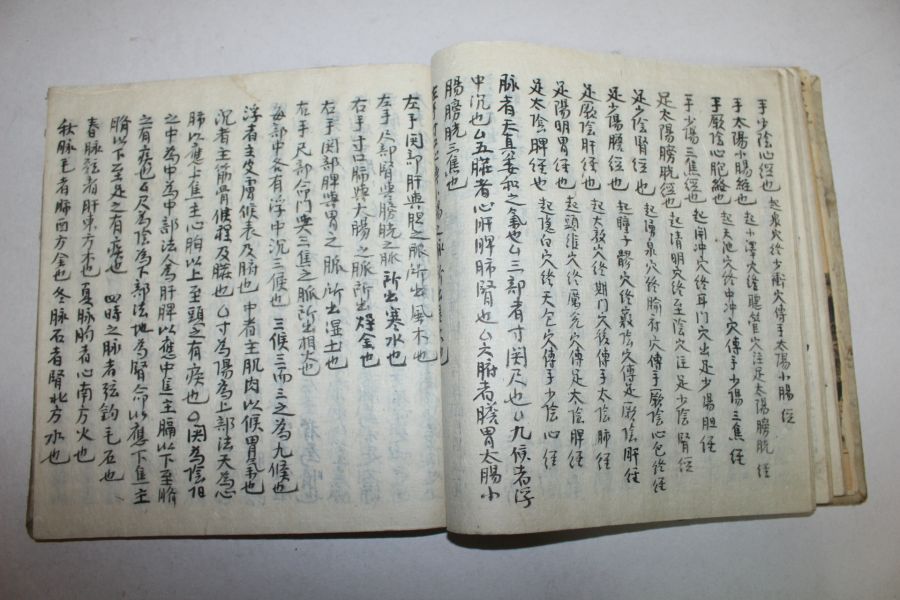 手少陰心經也 起泉穴終少衝穴傳手太陽小腸 经
手太陽小腸経也 起小澤穴終聽宮穴注足太陽膀胱 经
手厥陰心胞絡也 起天池穴終中冲穴傳手少陽三焦 经
手少陽三焦經也 起関冲穴終耳门穴出足少陽胆经
足太陽膀胱經也 起情明穴終至陰穴注足少陰腎经
足少陰腎經也 起湧泉穴終腧府穴傳手厥陰心包终经
足少陽膽经也 起瞳子髎穴終竅陰穴傳足厥陰肝经
足厥陰肝經也 起大敦穴終期门穴後傳手太陰肺经
足陽明胃經也 起頭維穴終厲兌穴傳足太陰脾经
足太陰脾經也 起隠白穴終大包穴傳手少陰心经
脉者天真委和之氣也厶三部者寸関尺也厶九候者浮
中沉也厶五臟者心肝脾肺腎也厶六腑者膽胃大腸小
腸膀胱三焦也
左手関部肝與胆之脈所出風木也
左手尺部腎與膀胱之脈所出寒水也
右手寸口肺與大腸之脈所出燥金也
右手関部脾與胃之脈所出湿土也
右手尺部命门與三焦之脈所出相火也
每部中各有浮中沉三候也 三候三而三之為九候也
浮者主皮膚候表及腑也 中者主肌肉以候胃氣也
沉者主筋骨候裡及臓也厶寸為陽為上部法天為心
肺以應上焦主心胸以上至頭之有疾也厶関為陰阳
之中為中為中部法人為肝脾以應中焦主膈以下至臍
之有疾也厶尺為陰為下部法地為腎命以應下焦主
臍以下至足之有疾也 四時之脉者弦鈎毛石也
春脉弦者肝東方木也 夏脉鈎者心南方火也
秋脈毛者肺西方金也 冬脉石者腎北方水也